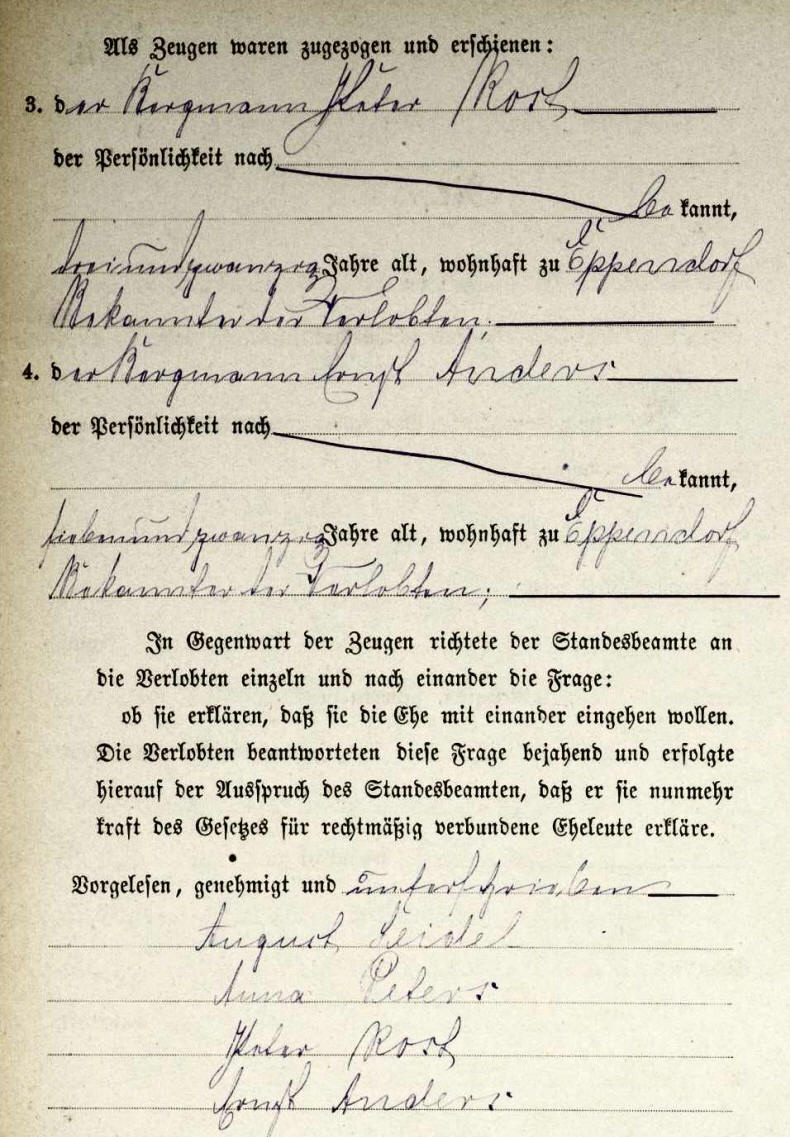 Als Zeugen waren zugezogen und erschienen:
3. der Bergmann Peter Rost
der Persönlichkeit nach
bekannt,
dreiundzwanzig Jahre alt, wohnhaft zu Eppendorf
Bekannter der Verlobten.
4. der Bergmann Ernst Anders
der Persönlichkeit nach
bekannt,
siebenundzwanzig Jahre alt, wohnhaft zu Eppendorf
Bekannter der Verlobten;
In Gegenwart der Zeugen richtete der Standesbeamte an
die Verlobten einzeln und nach einander die Frage:
ob sie erklären, daß sie die Ehe mit einander eingehen wollen.
Die Verlobten beantworteten diese Frage bejahend und erfolgte
hierauf der Ausspruch des Standesbeamten, daß er sie nunmehr
kraft des Gesetzes für rechtmäßig verbundene Eheleute erkläre.
Vorgelesen, genehmigt und unterschrieben
August Seidel
Anna Peters
Peter Rost
Ernst Anders